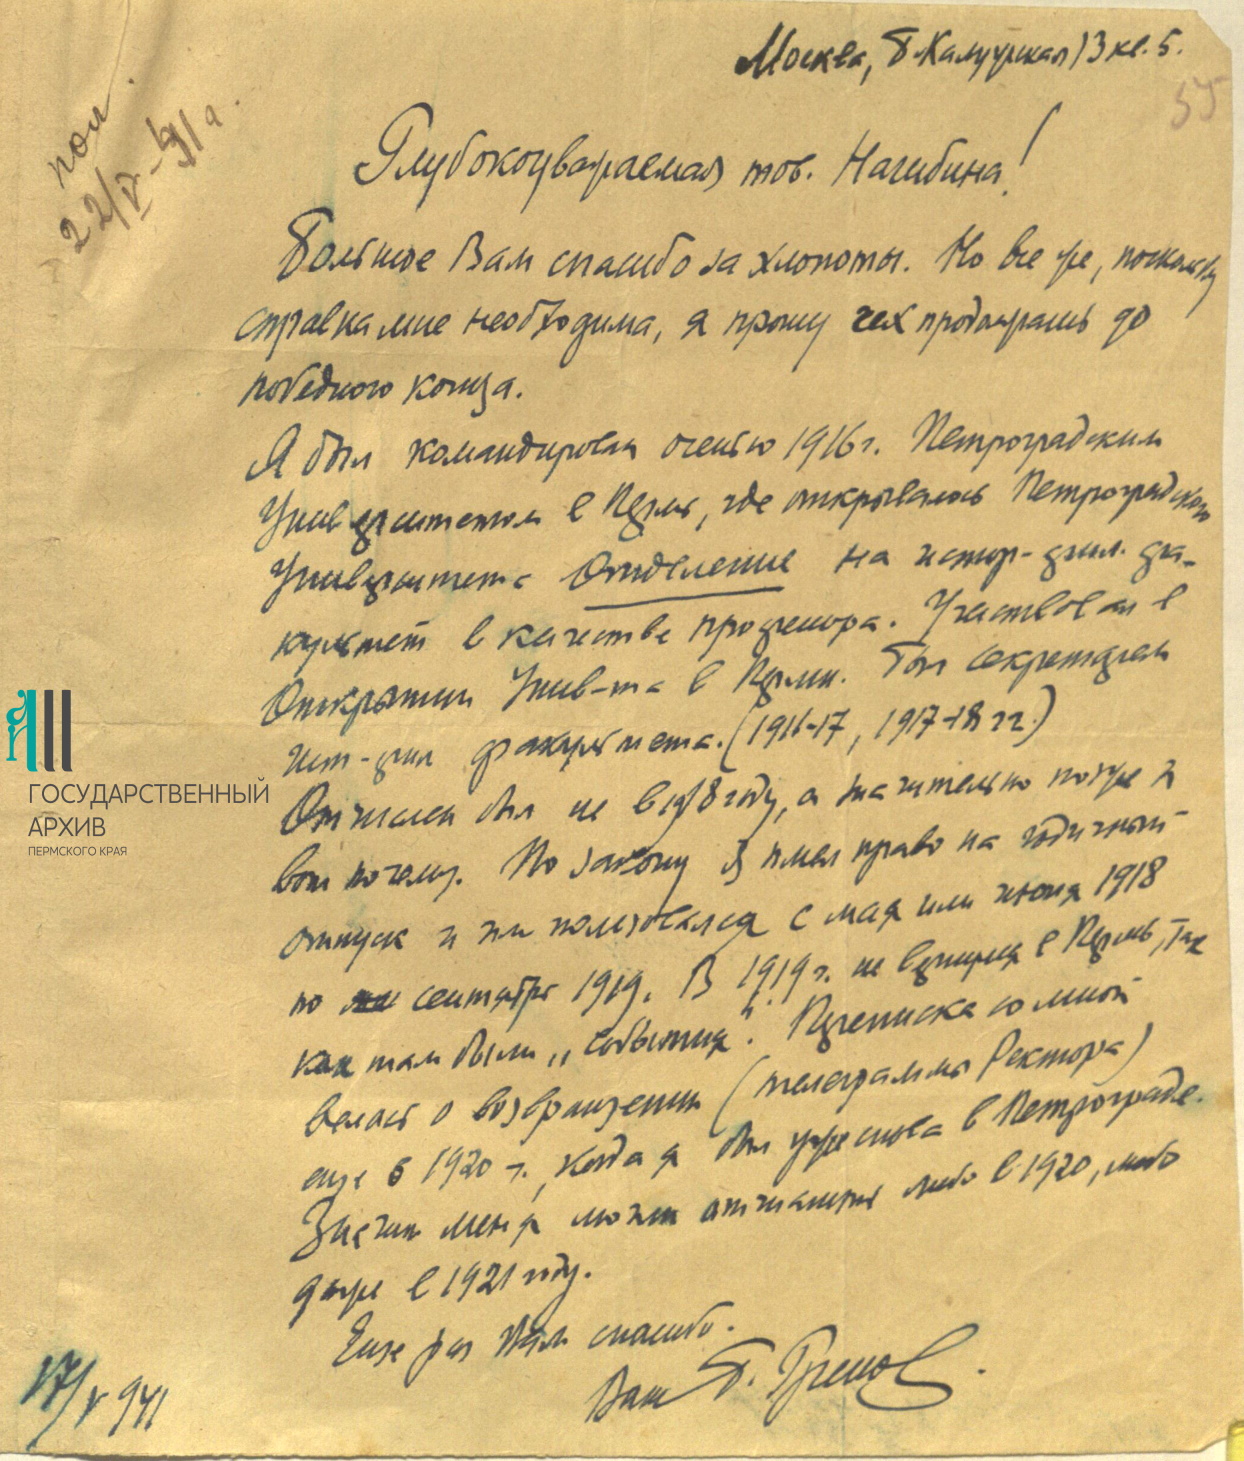 Москва, Б. Калужская 13 кв. 5.
55
пол.
22/V-41 г.
Глубокоуважаемая тов. Нагибина!
Большое Вам спасибо за хлопоты. Но все же, поскольку
справка мне необходима, я прошу их продолжать до
победного конца.
Я был командирован осенью 1916 г. Петроградским
Университетом в Пермь, где открывалось Петроградского
Университета Отделение на истор-фил. фа-
культет в качестве профессора. Участвовал в
Открытии Унив-та в Перми. Был секретарем
ист-фил факультета. (1916-17, 1917-18 гг.)
Отчислен был не в 1918 году, а значительно позже и
вот почему. По закону я имел право на годичный
отпуск и им пользовался с мая или июня 1918
по сентябрь 1919. В 1919 г. не вернулся в Пермь, так
как там были „события". Переписка со мной
велась о возвращении (телеграммы Ректора)
еще в 1920 г., когда я был уже снова в Петрограде.
Значит меня могли отчислить либо в 1920, либо
даже в 1921 году.
Еще раз Вам спасибо.
Ваш Б. Греков.
17/V 941
ГОСУДАРСТВЕННЫЙ
АРХИВ
ПЕРМСКОГО КРАЯ